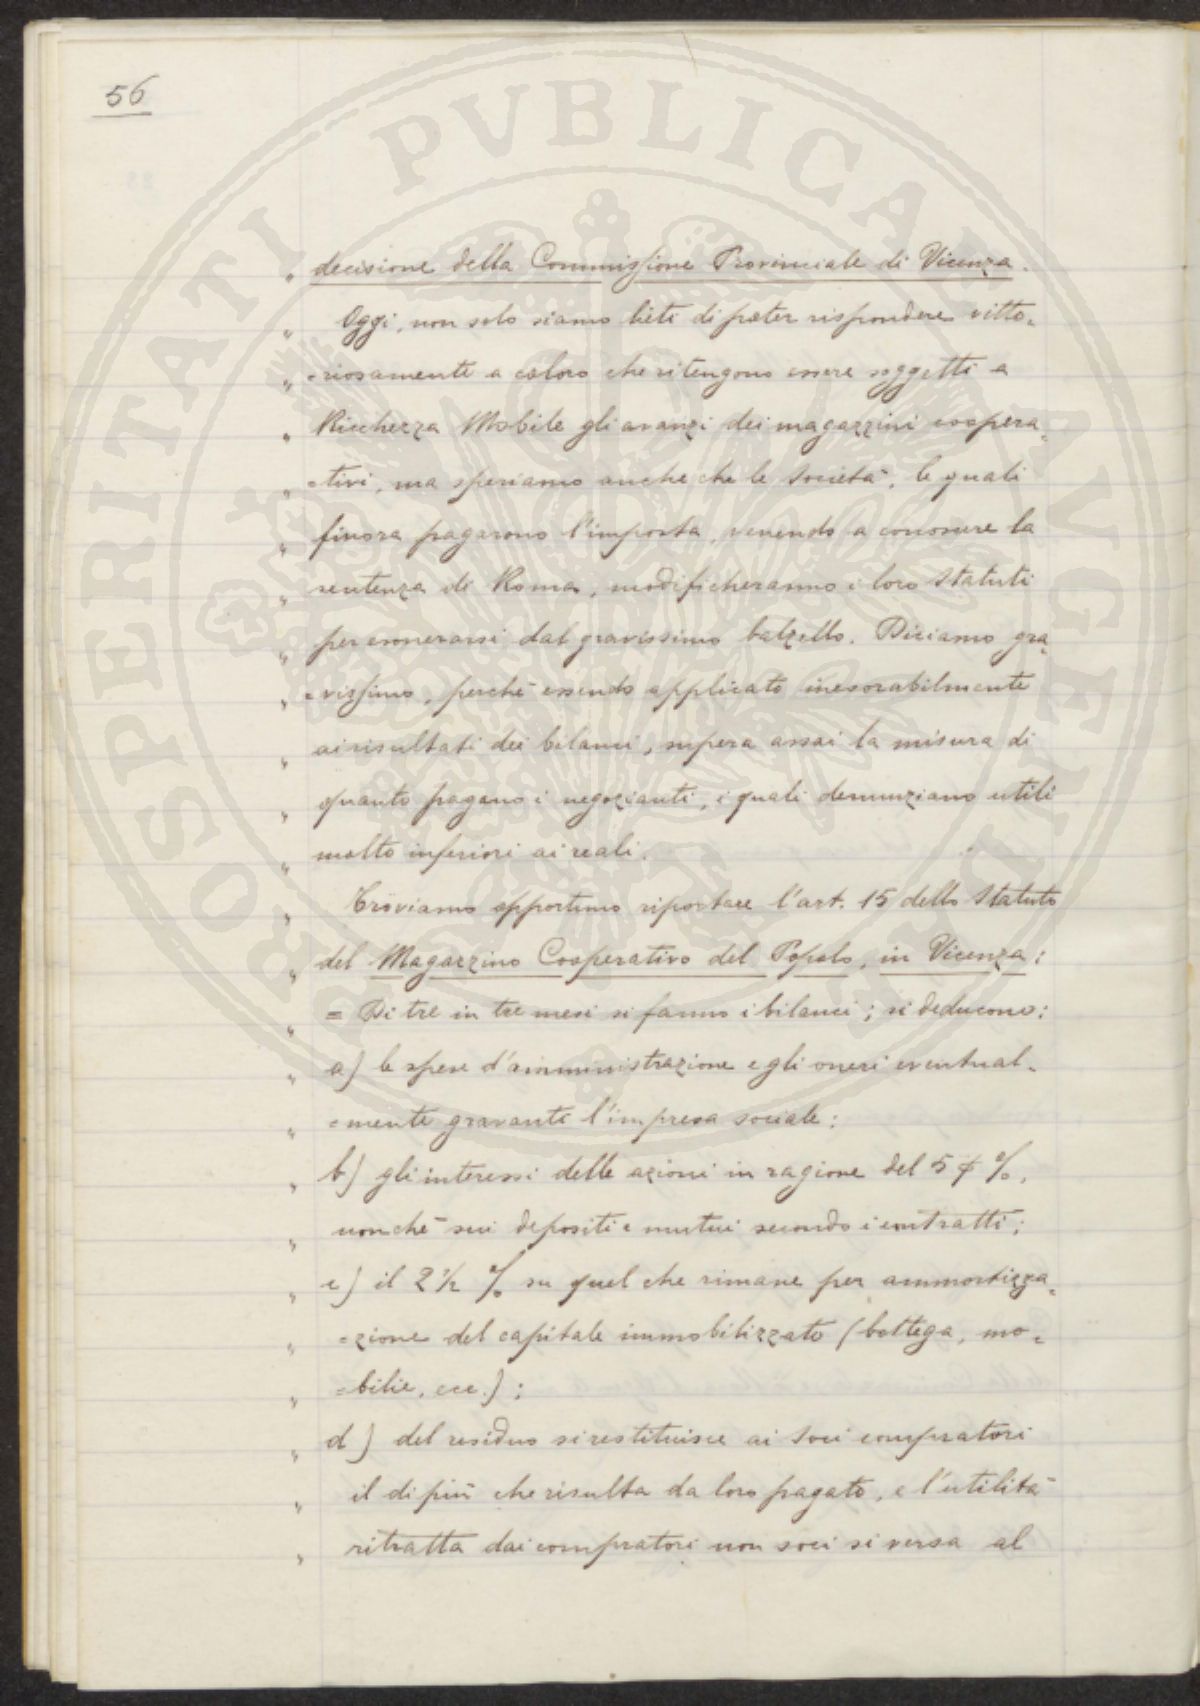 56
PROSPERITATI PVBLICAE AVGENDAE
„ decisione della Commissione Provinciale di Vicenza.
„ Oggi, non solo siamo lieti di poter rispondere vitto=
„ =riosamente a coloro che ritengono essere soggetti a
„ Ricchezza Mobile gli avanzi dei magazzini coopera=
„ =tivi, ma speriamo anche che le Società, le quali
„ finora pagarono l'imposta, venendo a conoscere la
„ sentenza di Roma, modificheranno i loro Statuti
„ per esonerarsi dal gravissimo balzello. Diciamo gra=
„ =vissimo, perchè essendo applicato inesorabilmente
„ ai risultati dei bilanci, supera assai la misura di
„ quanto pagano i negozianti, i quali denunziano utili
„ molto inferiori ai reali.
„ Troviamo opportuno riportare l'art. 15 dello Statuto
„ del Magazzino Cooperativo del Popolo, in Vicenza:
„ = Di tre in tre mesi si fanno i bilanci; si deducono:
„ a) le spese d'amministrazione e gli oneri eventual=
„ =mente gravanti l'impresa sociale:
„ b) gli interessi delle azioni in ragione del 5 %,
„ nonchè sui depositi e mutui secondo i contratti;
„ c) il 2 ½ % su quel che rimane per ammortizza=
„ =zione del capitale immobilizzato (bottega, mo=
„ =bilie, ecc.);
„ d) del residuo si restituisce ai Soci compratori
„ il di più che risulta da loro pagato, e l'utilità
„ ritratta dai compratori non soci si versa al